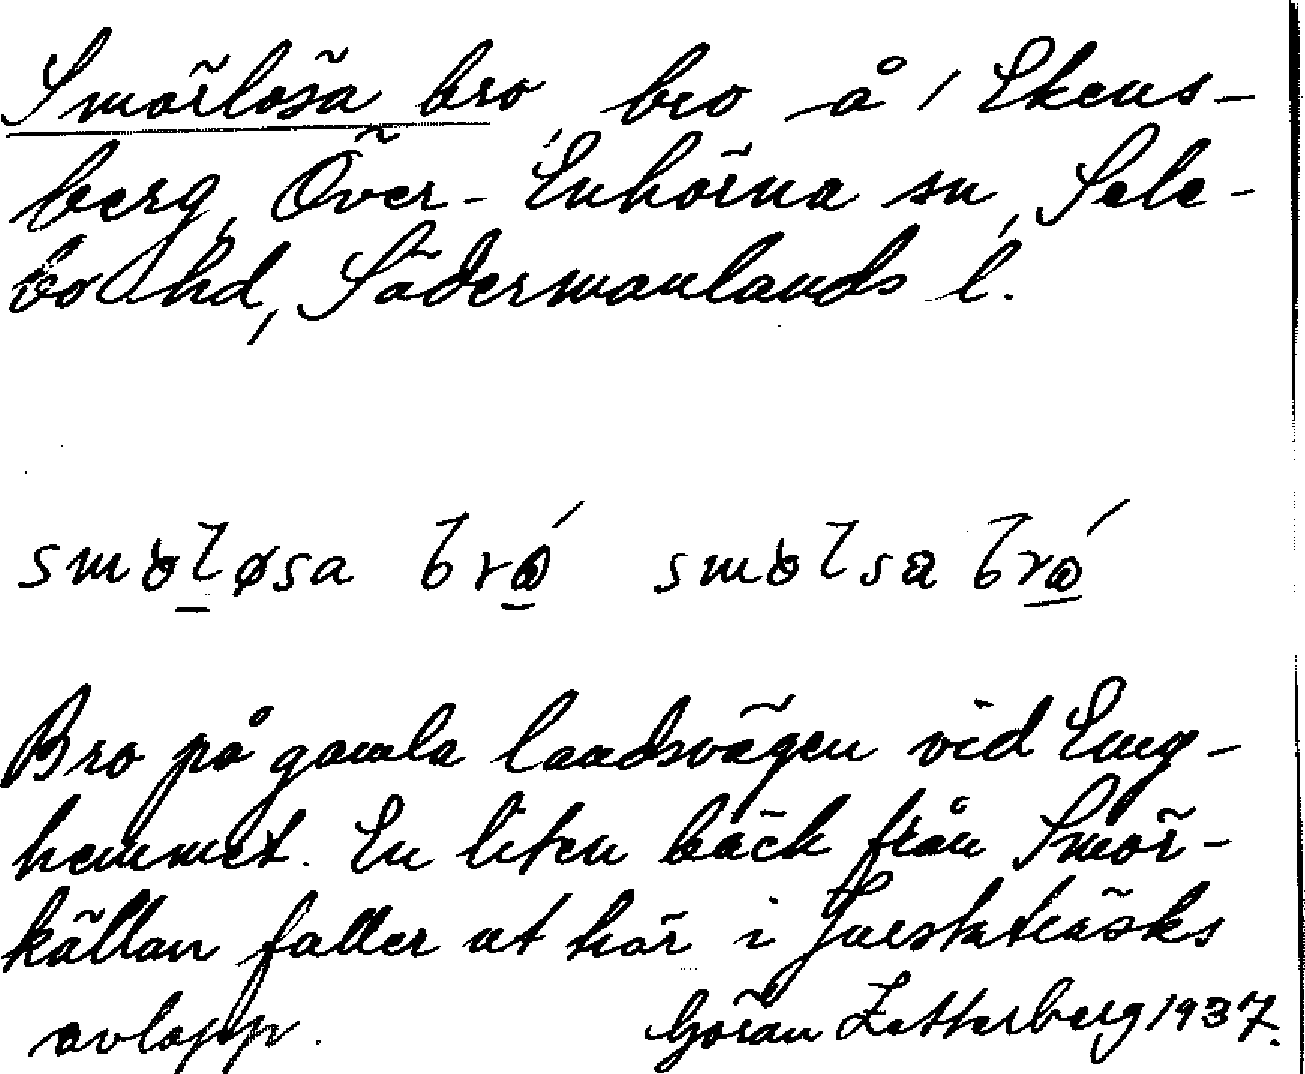 Smörlösa bro, bro å / Ekens-
berg, Över-Enhörna sn, Sele-
bo hd, Södermanlands l.
smöløsa bró smölsa bró
Bro på gamla landsvägen vid Eng-
hemmet. En liten bäck från Smör-
källan faller ut här i träsks
avlopp. Göran Zetterberg 1937.